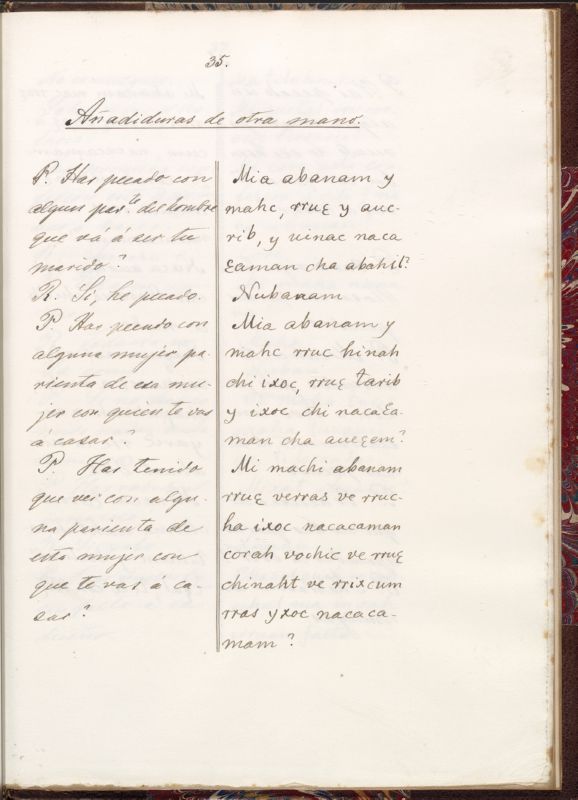 35.
Añadiduras de otra mano.
P. Has pecado con
algun par.te del hombre
que vá á ser tu
marido?
R. Si, he pecado.
P. Has pecado con
alguna mujer pa-
rienta de esa mu-
jer con quien te vas
á casar?
P. Has tenido
que ver con algu-
na parienta de
esta mujer con
que te vas á ca-
sar?
Mia abanam y
mahc, rruꜫ y auc-
rib, y uinac naca
ꜫaman cha abahil?
Nubanam
Mia abanam y
mahc rruc hinah
chi ixoc, rruꜫ tarib
y ixoc chi nacaꜫa-
man cha aucꜫem?
Mi machi abanam
rruꜫ verras ve rruc-
ha ixoc nacacaman
corah vochic ve rruꜫ
chinaht ve rrixcum
rras yxoc nacaca-
mam?